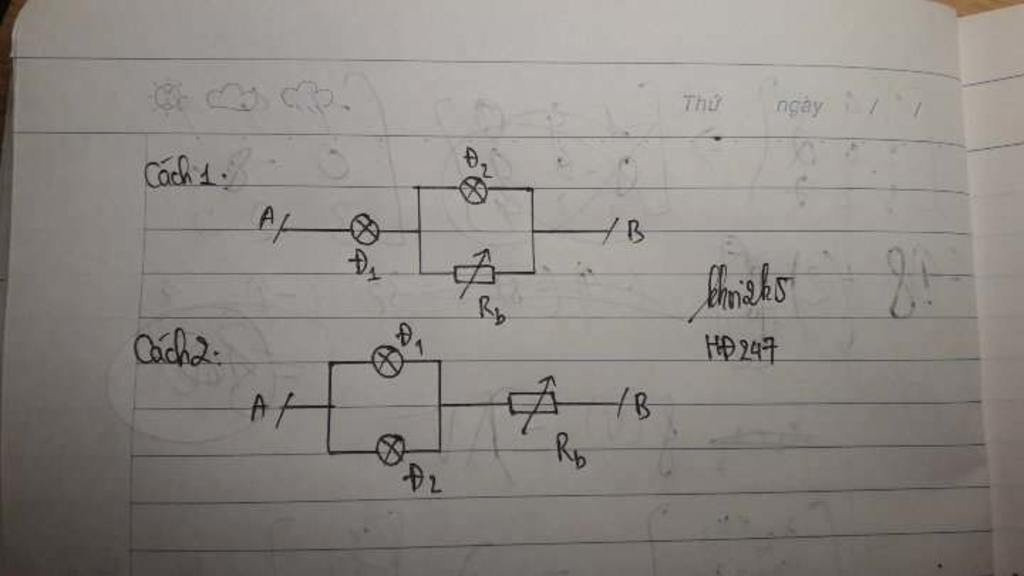 Thứ ngày / /
Cách 1.
Đ2
A B
Đ1
Rb
khoi2k5
HĐ247
Cách 2.
Đ1
A B
Rb
Đ2